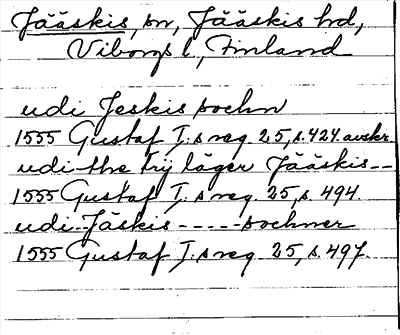 Jääskis, sn, Jääskis hd,
Viborgs l, Finland
udi Jeskis sochn
1555 Gustaf I:s reg. 25, s. 424. avskr.
udi the trij läger Jääskis --
1555 Gustaf I:s reg. 25, s. 494.
udi -- Jäskis ----- sochner
1555 Gustaf I:s reg. 25, s. 497.